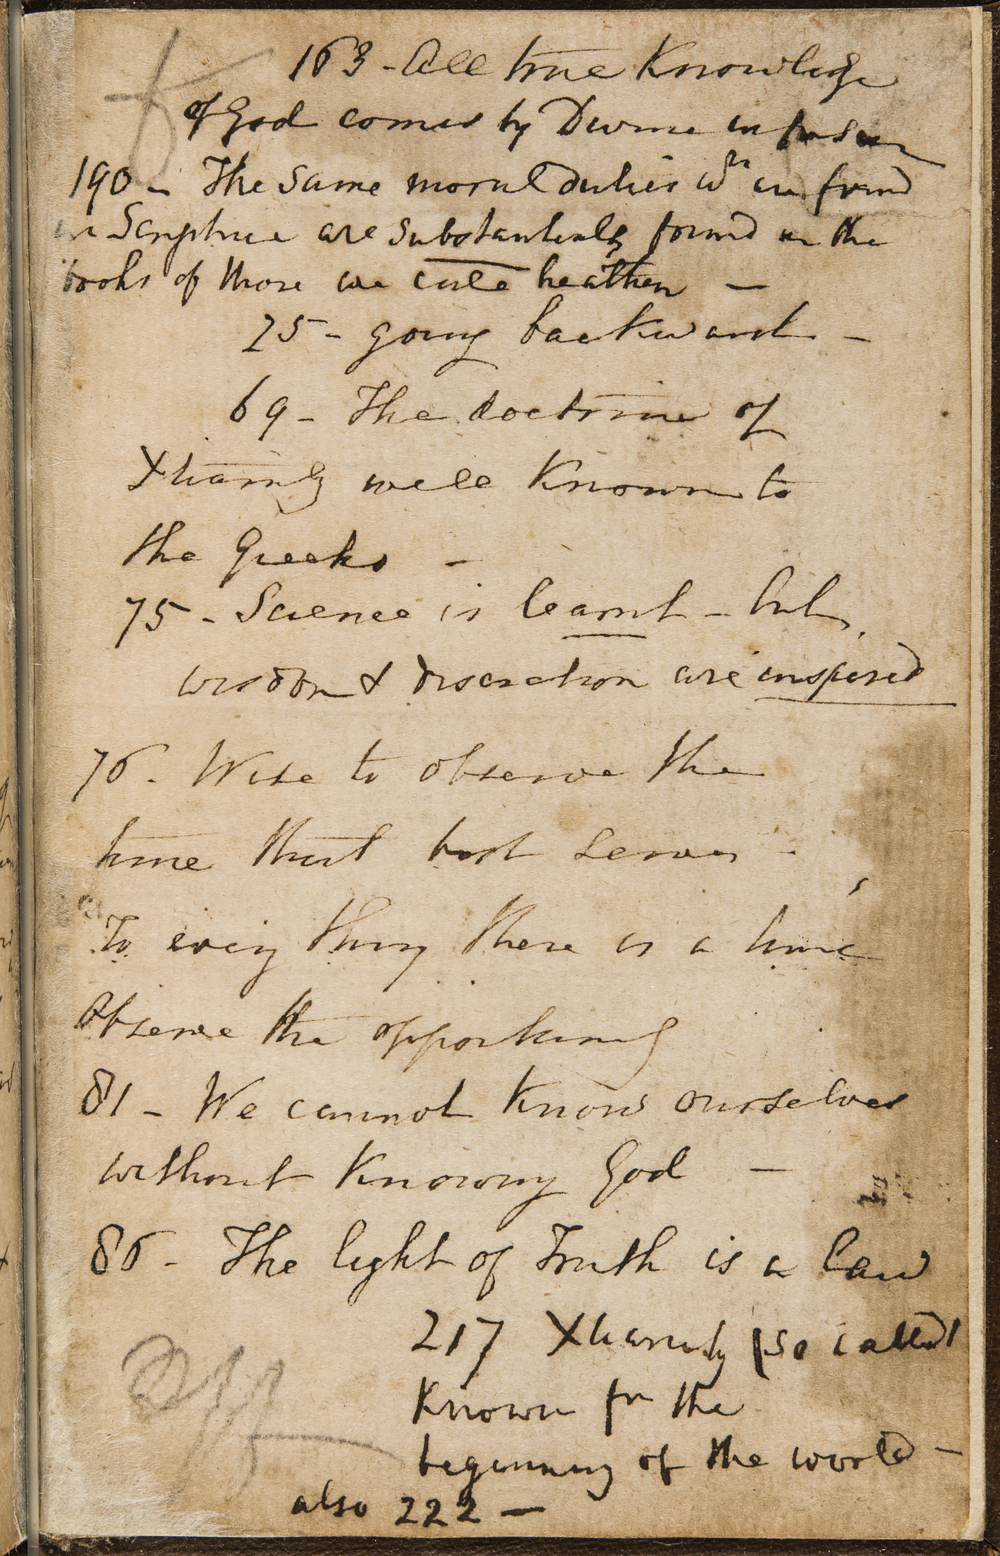 163 - All true Knowledge
of God comes by Divine infusion
190 - The same moral duties wh are found
in Scripture are substantially found in the
books of those we call heathen —
25 - going backward -
69 - The doctrine of
Xtianity well Known to
the Greeks -
75 - Science is learnt - but
wisdom & discretion are inspired
76 - Wise to observe the
time that best serves -
To every thing there is a time
Observe the opportunity
81 - We cannot Know ourselves
without Knowing God —
86 - The light of Truth is a law
217 Xtianity (so called)
Known fm the
beginning of the world -
also 222 —